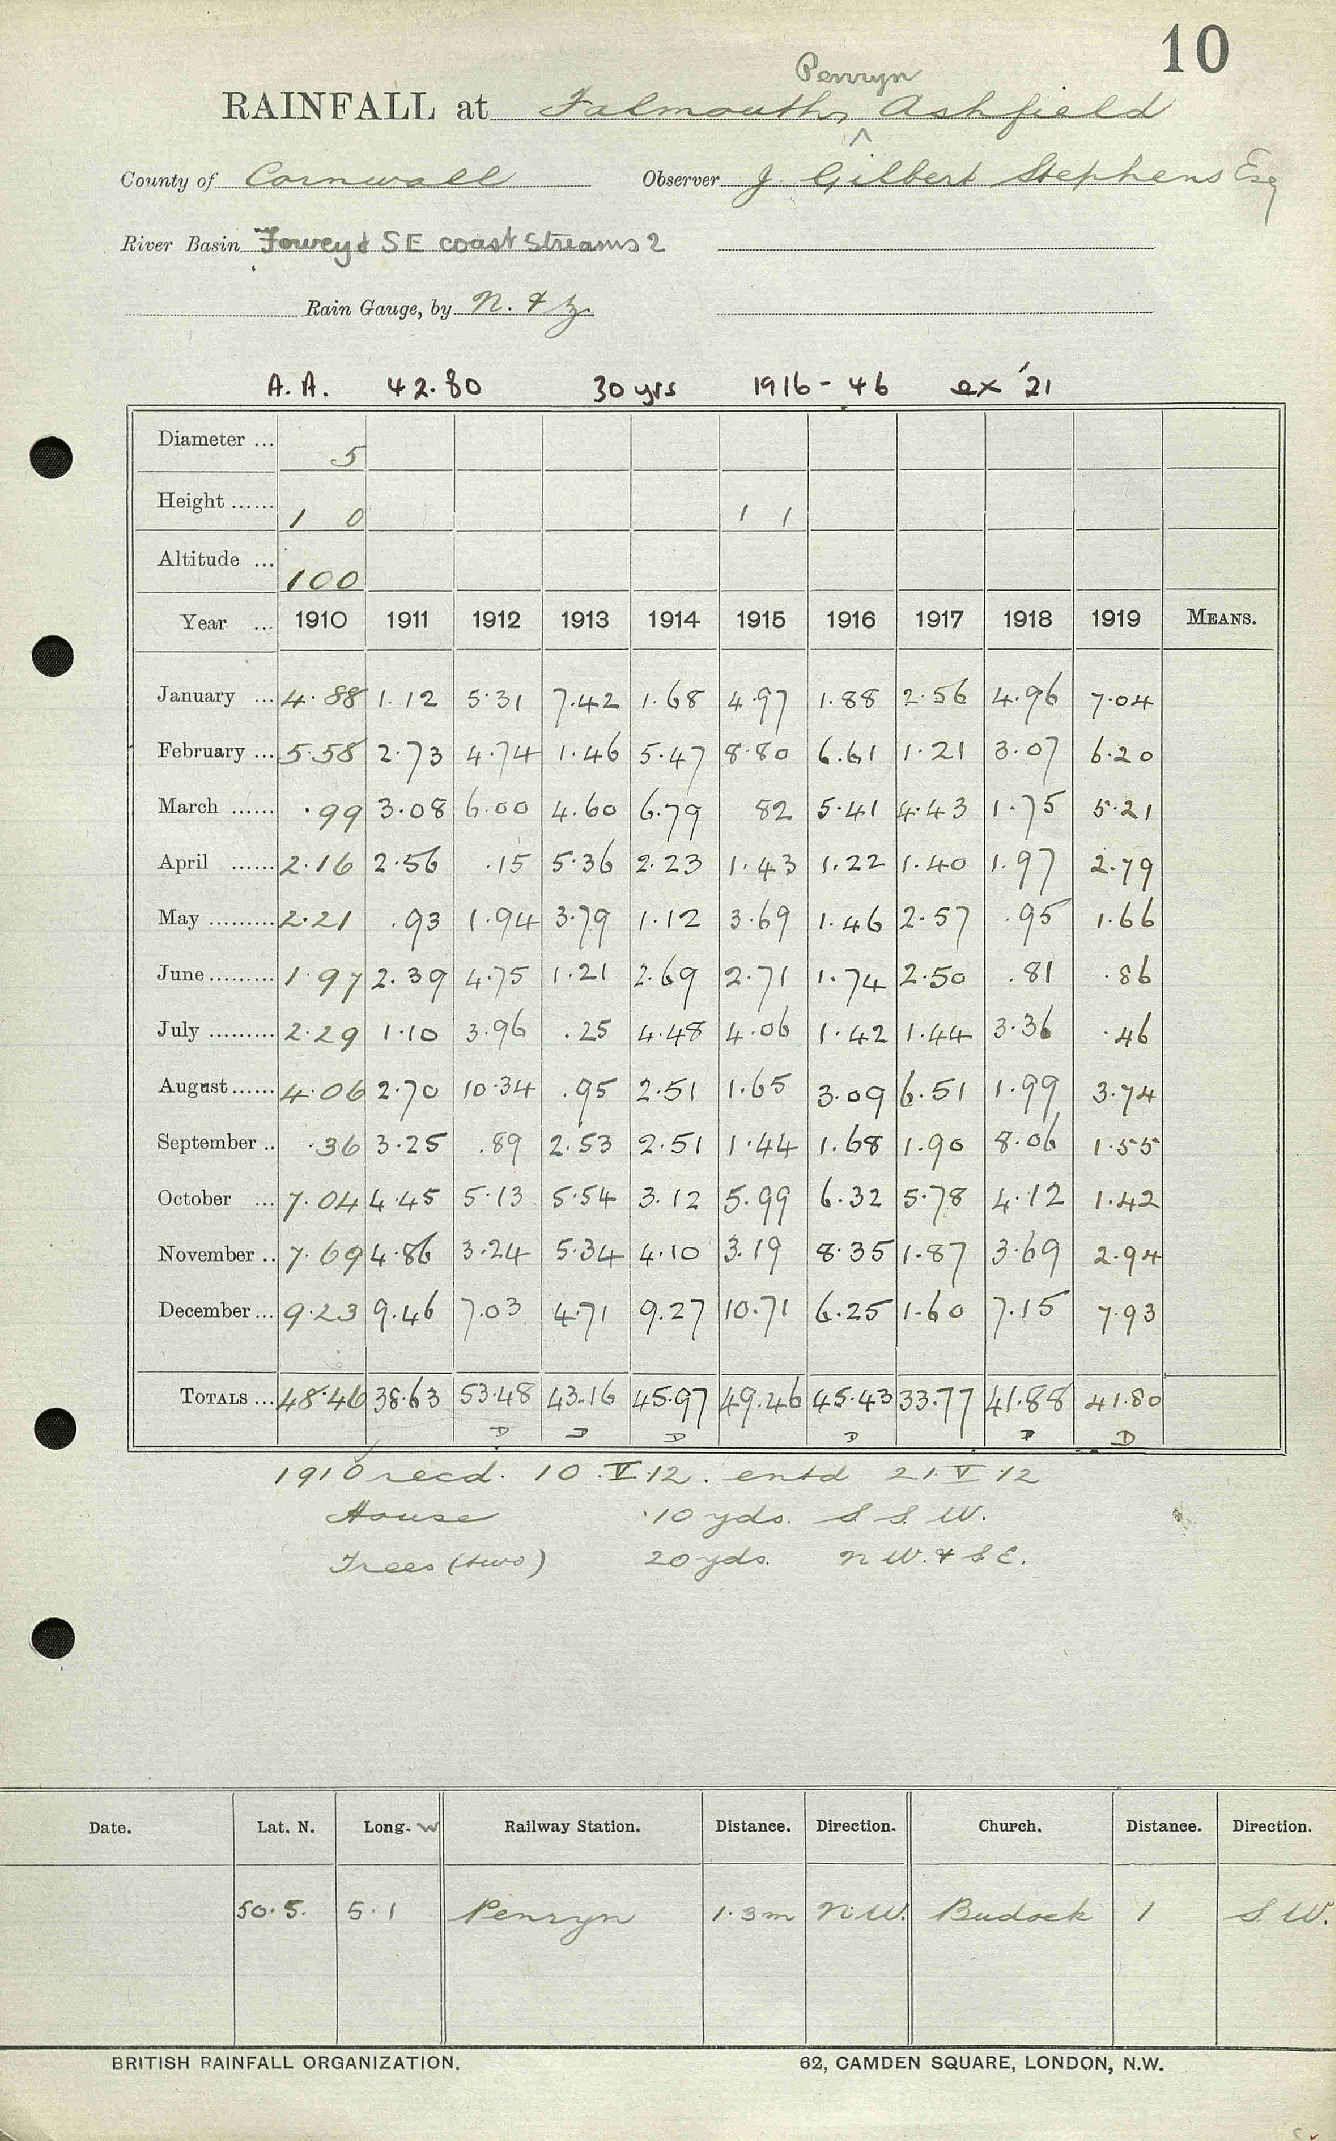 10
Penryn
RAINFALL at Falmouth, ^ Ashfield
County of Cornwall Observer J. Gilbert Stephens Esq
River Basin Fowey & SE coast Streams 2
Rain Gauge, by N. & Z.
A.A. 42.80 30 yrs 1916-46 ex '21
Diameter ... 5
Height ...... 1 0 1 1
Altitude ... 100
Year ... 1910 1911 1912 1913 1914 1915 1916 1917 1918 1919 MEANS.
January ... 4.88 1.12 5.31 7.42 1.68 4.97 1.88 2.56 4.96 7.04
February ... 5.58 2.73 4.74 1.46 5.47 8.80 6.61 1.21 3.07 6.20
March ...... .99 3.08 6.00 4.60 6.79 82 5.41 4.43 1.75 5.21
April ...... 2.16 2.56 .15 5.36 2.23 1.43 1.22 1.40 1.97 2.79
May ......... 2.21 .93 1.94 3.79 1.12 3.69 1.46 2.57 .95 1.66
June ......... 1.97 2.39 4.75 1.21 2.69 2.71 1.74 2.50 .81 .86
July ......... 2.29 1.10 3.96 .25 4.48 4.06 1.42 1.44 3.36 .46
August ...... 4.06 2.70 10.34 .95 2.51 1.65 3.09 6.51 1.99 3.74
September .. .36 3.25 .89 2.53 2.51 1.44 1.68 1.90 8.06 1.55
October ... 7.04 4.45 5.13 5.54 3.12 5.99 6.32 5.78 4.12 1.42
November .. 7.69 4.86 3.24 5.34 4.10 3.19 8.35 1.87 3.69 2.94
December ... 9.23 9.46 7.03 4.71 9.27 10.71 6.25 1.60 7.15 7.93
TOTALS ... 48.46 38.63 53.48 43.16 45.97 49.46 45.43 33.77 41.88 41.80
D D D D D D
1910 recd. 10.V.12. entd 21.V.12
House 10 yds. S.S.W.
Trees (two) 20 yds. N.W. & S.E.
Date. Lat. N. Long. W Railway Station. Distance. Direction. Church. Distance. Direction.
50.5. 5.1 Penryn 1.3m N.W. Budock 1 S.W.
BRITISH RAINFALL ORGANIZATION. 62, CAMDEN SQUARE, LONDON, N.W.